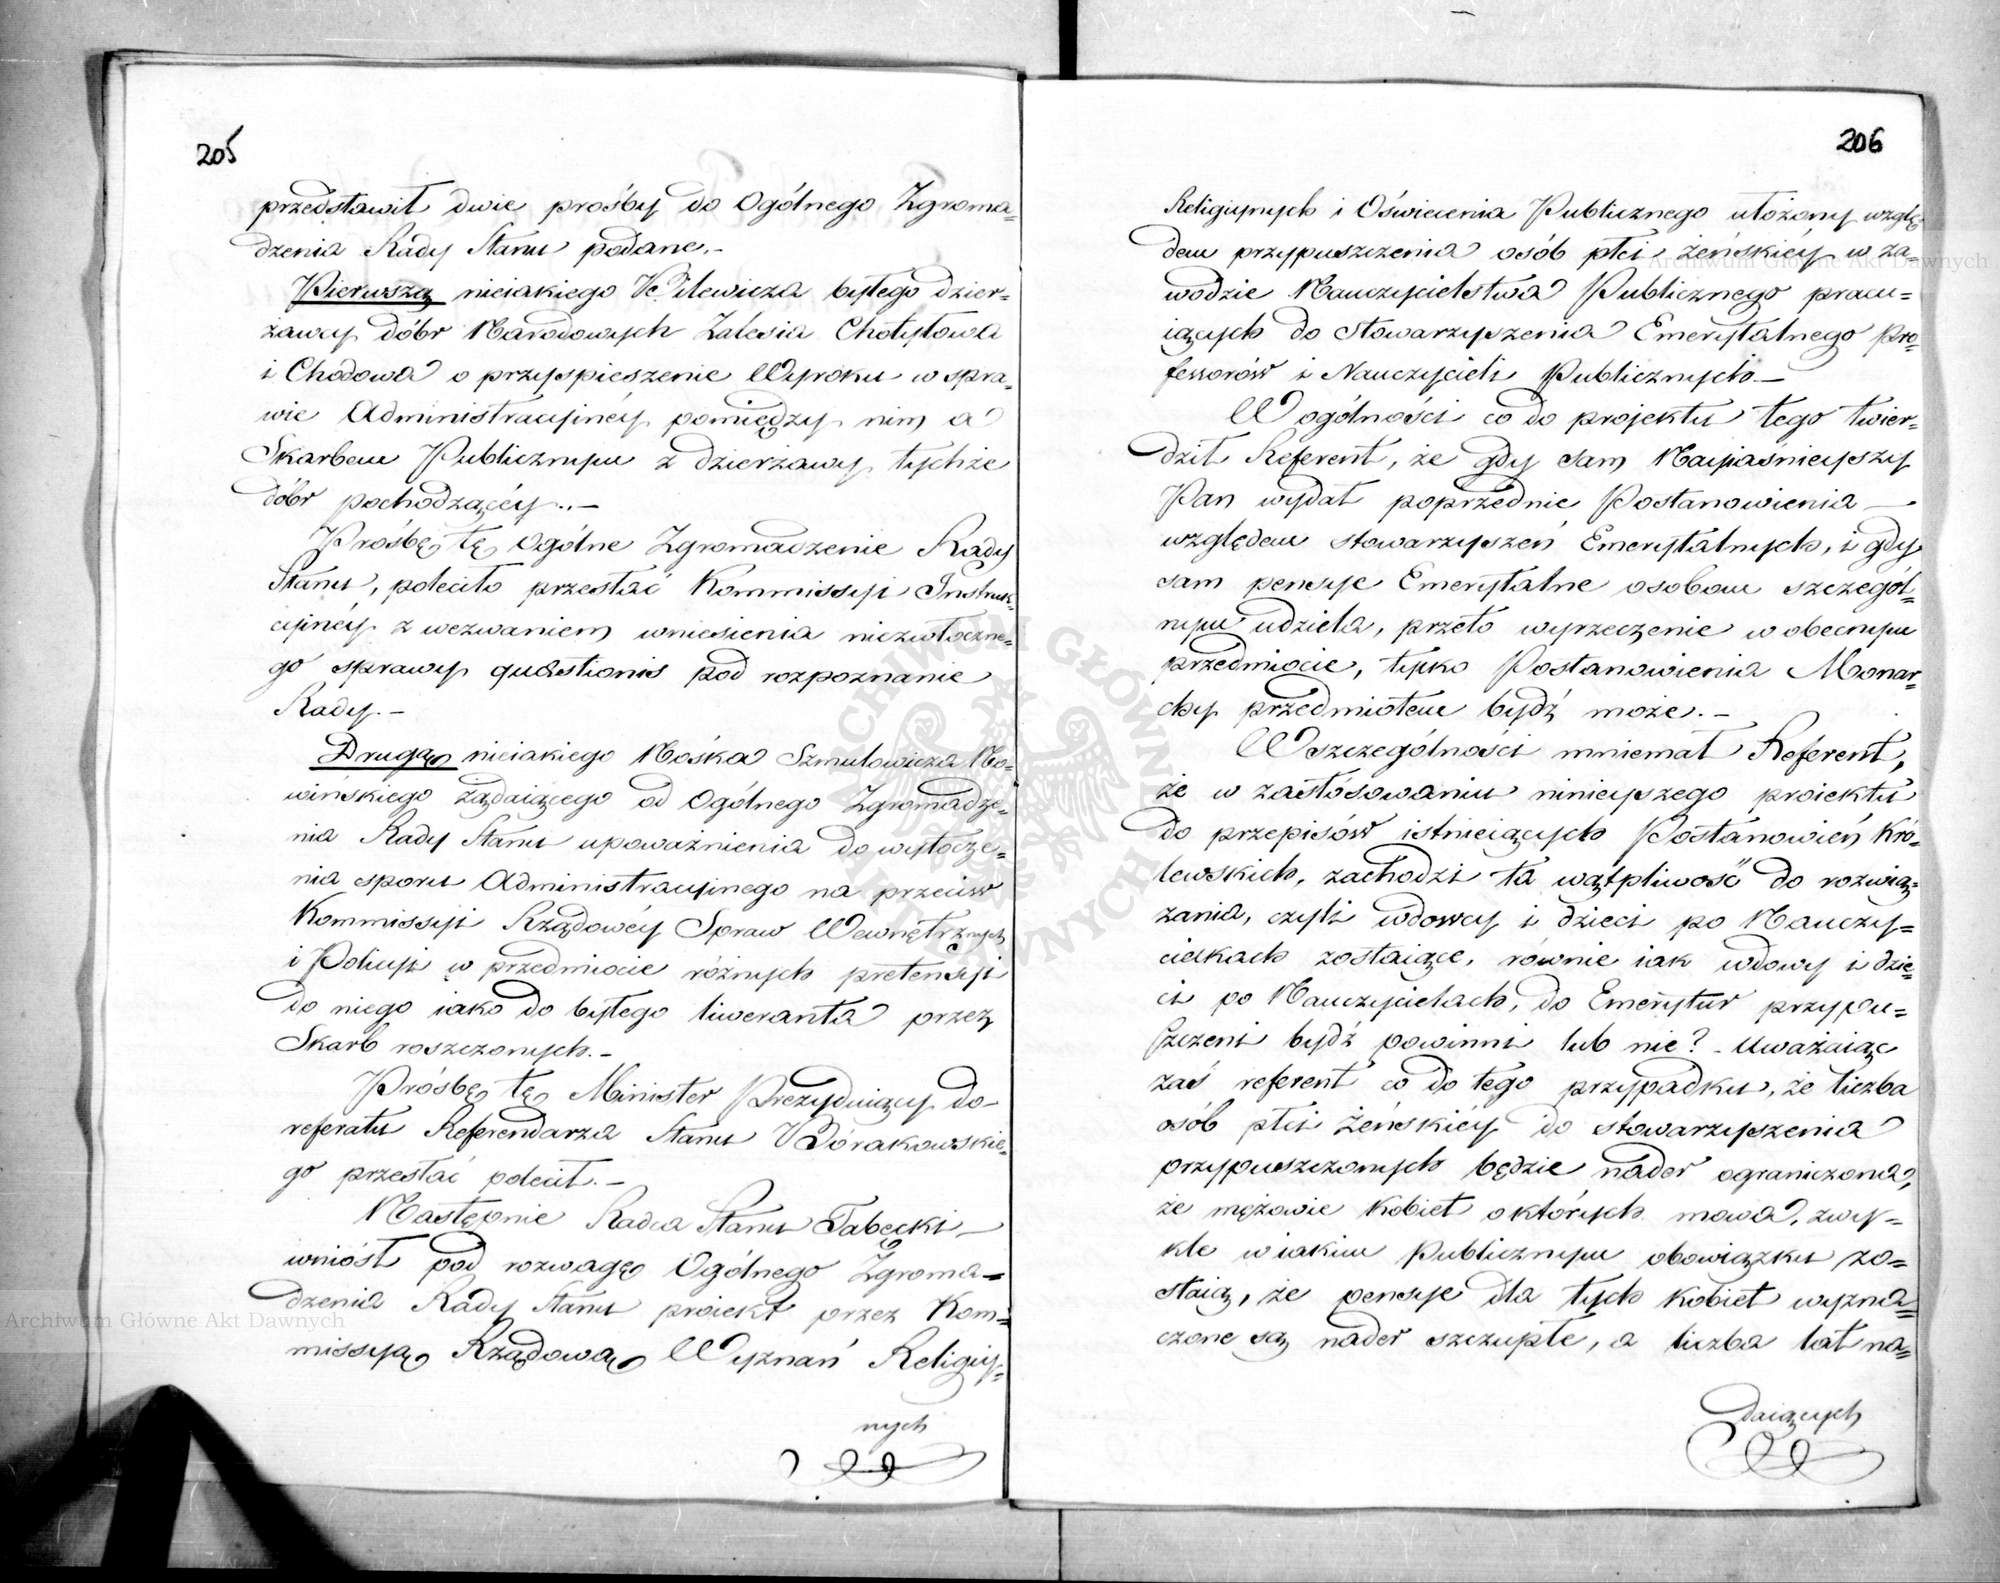 205
przedstawił dwie prośby do Ogólnego Zgroma=
dzenia Rady Stanu podane.-
Pierwszą nieiakiego Wilewicza byłego dzier-
żawcy dóbr Narodowych Zalesia Chotyłowa
i Chodowa o przyspieszenie Wyroku w spra-
wie Administracyinéy pomiędzy nim a
Skarbem Publicznym z dzierżawy tychże
dóbr pochodzącéy.-
Prośbę tę Ogólne Zgromadzenie Rady
Stanu, poleciło przesłać Kommissyi Instruk-
cyinéy z wezwaniem wniesienia niezwłoczne-
go sprawy quaestionis pod rozpoznanie
Rady.-
Drugą nieiakiego Mośka Szmulowicza No-
wińskiego żądaiącego od Ogólnego Zgromadze-
nia Rady Stanu upoważnienia do wytocze-
nia sporu Administracyinego na przeciw
Kommissyi Rządowéy Spraw Wewnętrznych
i Policyi w przedmiocie różnych pretensyi
do niego iako do byłego liweranta przez
Skarb roszczonych.-
Prośbę tę Minister Prezyduiący do-
referatu Referendarza Stanu Wórakowskie-
go przesłać polecił.-
Następnie Radca Stanu Tabęcki-
wniósł pod rozwagę Ogólnego Zgroma=
dzenia Rady Stanu proiekt przez Kom=
missyą Rządową Wyznań Religiy=
nych
206
Religiynych i Oświecenia Publicznego ułożony wzglę-
dem przypuszczenia osób płci żeńskiéy w za-
wodzie Nauczycielstwa Publicznego pracu=
iących do stowarzyszenia Emerytalnego Pro-
fessorów i Nauczycieli Publicznych.-
W ogólności co do projektu tego twier-
dził Referent, że gdy sam Nayiaśnieyszy
Pan wydał poprzednie Postanowienia-
względem stowarzyszeń Emerytalnych, i gdy
sam pensye Emerytalne osobom szczegól=
nym udziela, przeto wyrzeczenie w obecnym
przedmiocie, tylko Postanowienia Monar-
chy przedmiotem bydź może.-
W szczególności mniemał Referent,
że w zastósowaniu ninieyszego proiektu
do przepisów istnieiących Postanowień Kró-
lewskich, zachodzi ta wątpliwość do rozwią=
zania, czyli wdowcy i dzieci po Nauczy=
cielkach zostaiące, równie iak wdowy i dzie-
ci po Nauczycielach, do Emerytur przypu=
szczeni bydź powinni lub nie? - Uważaiąc
zaś referent co do tego przypadku, że liczba
osób płci żeńskiéy do stowarzyszenia
przypuszczonych będzie nader ograniczona,
że mężowie kobiet o których mowa, zwy=
kle w iakim publicznym obowiązku zo=
staią, że pensye dla tych kobiet wyzna=
czone są nader szczupłe, a liczba lat na=
daiących
Archiwum Główne Akt Dawnych
Archiwum Główne Akt Dawnych
ARCHIWUM GŁÓWNE AKT DAWNYCH